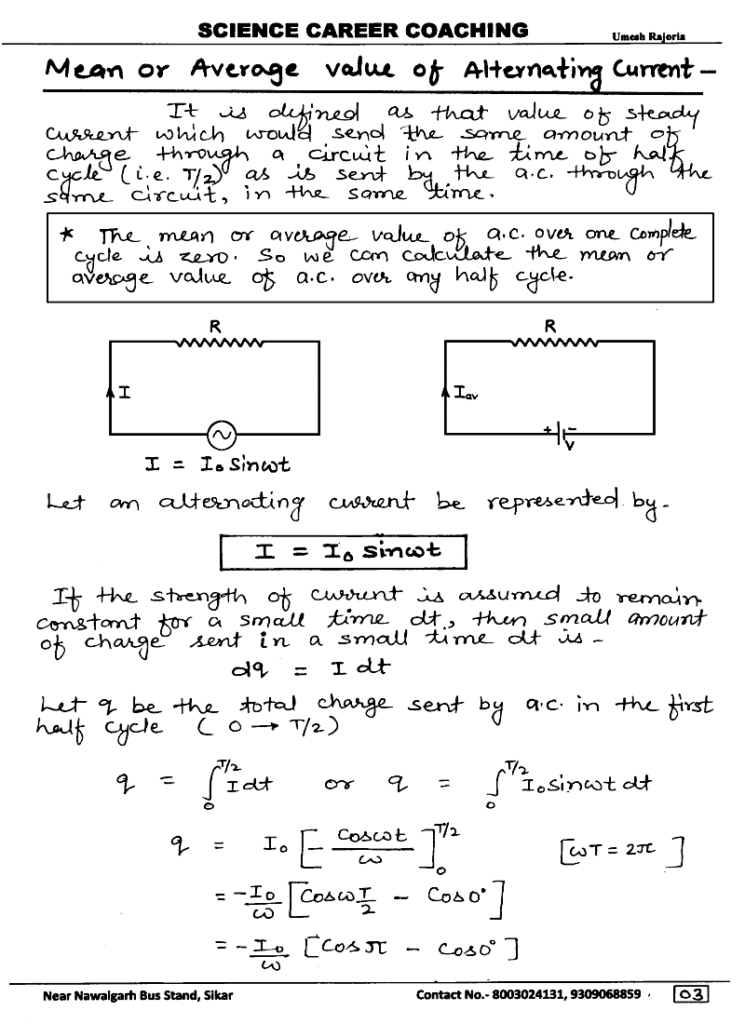 SCIENCE CAREER COACHING
Umesh Rajoria
Mean or Average value of Alternating Current –
It is defined as that value of steady
current which would send the same amount of
charge through a circuit in the time of half
cycle (i.e. T/2) as is sent by the a.c. through the
same circuit, in the same time.
* The mean or average value of a.c. over one complete
cycle is zero. So we can calculate the mean or
average value of a.c. over any half cycle.
R R
I Iav
+ –
V
I = I₀ sinωt
Let an alternating current be represented by –
I = I₀ sinωt
If the strength of current is assumed to remain
constant for a small time dt, then small amount
of charge sent in a small time dt is –
dq = I dt
Let q be the total charge sent by a.c. in the first
half cycle ( 0 → T/2 )
q = ∫₀^{T/2} I dt or q = ∫₀^{T/2} I₀ sinωt dt
q = I₀ [ – cosωt / ω ]₀^{T/2} [ωT = 2π ]
= –I₀/ω [ Cosω T/2 – Cos0° ]
= – I₀/ω [ Cos π – cos0° ]
Near Nawalgarh Bus Stand, Sikar Contact No.- 8003024131, 9309068859 . 03